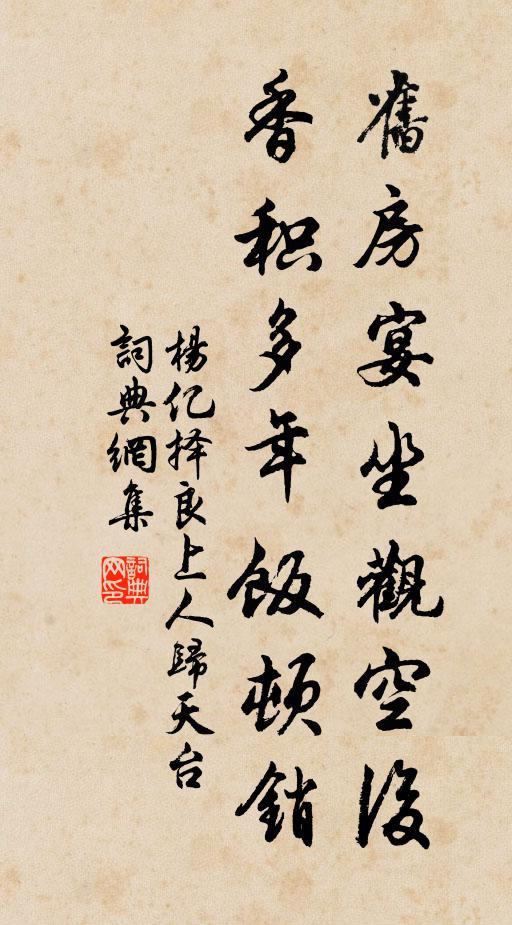 舊房宴坐觀空後
香积多年飯頓銷
楊亿择良上人歸天台
詞典網集
詞典网印